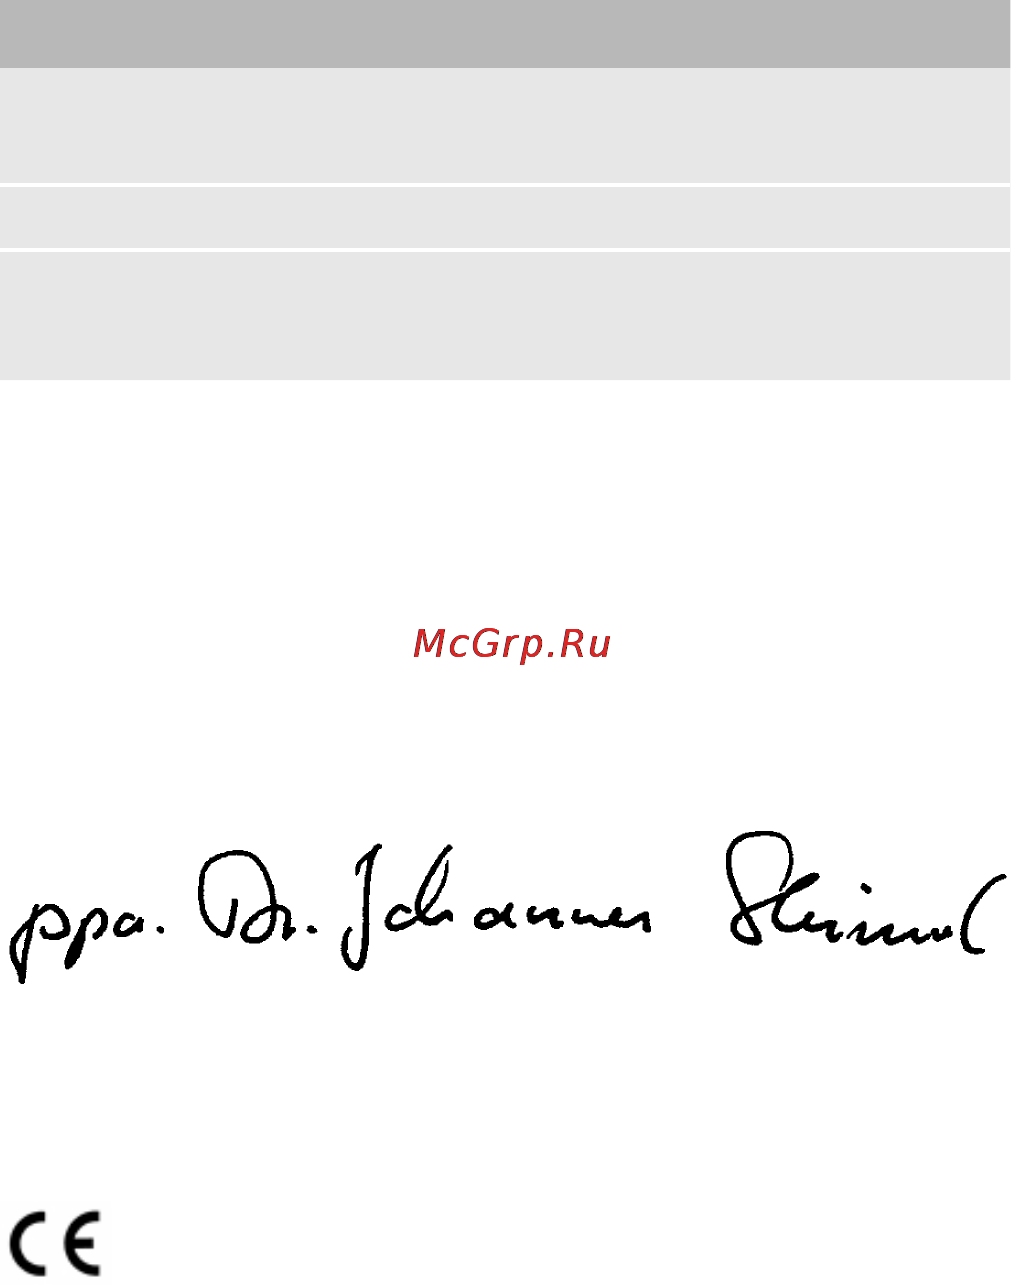 McGrp.Ru
ppa. Dr. Johannes Steinel
CE